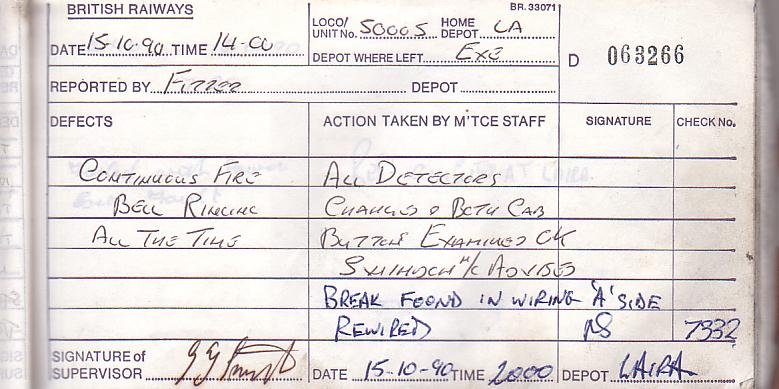 BRITISH RAILWAYS
BR. 33071
DATE 15-10-90 TIME 14-00
LOCO/ UNIT No. 50005 HOME DEPOT LA
DEPOT WHERE LEFT EXE
D 063266
REPORTED BY FITTER DEPOT
DEFECTS ACTION TAKEN BY M'TCE STAFF SIGNATURE CHECK No.
CONTINUOUS FIRE ALL DETECTORS
BELL RINGING CHANGED & BOTH CAB
ALL THE TIME BUTTONS EXAMINED OK
SWINDON H/C ADVISED
BREAK FOUND IN WIRING 'A' SIDE
REWIRED 7332
SIGNATURE of SUPERVISOR DATE 15-10-90 TIME 2000 DEPOT LAIRA